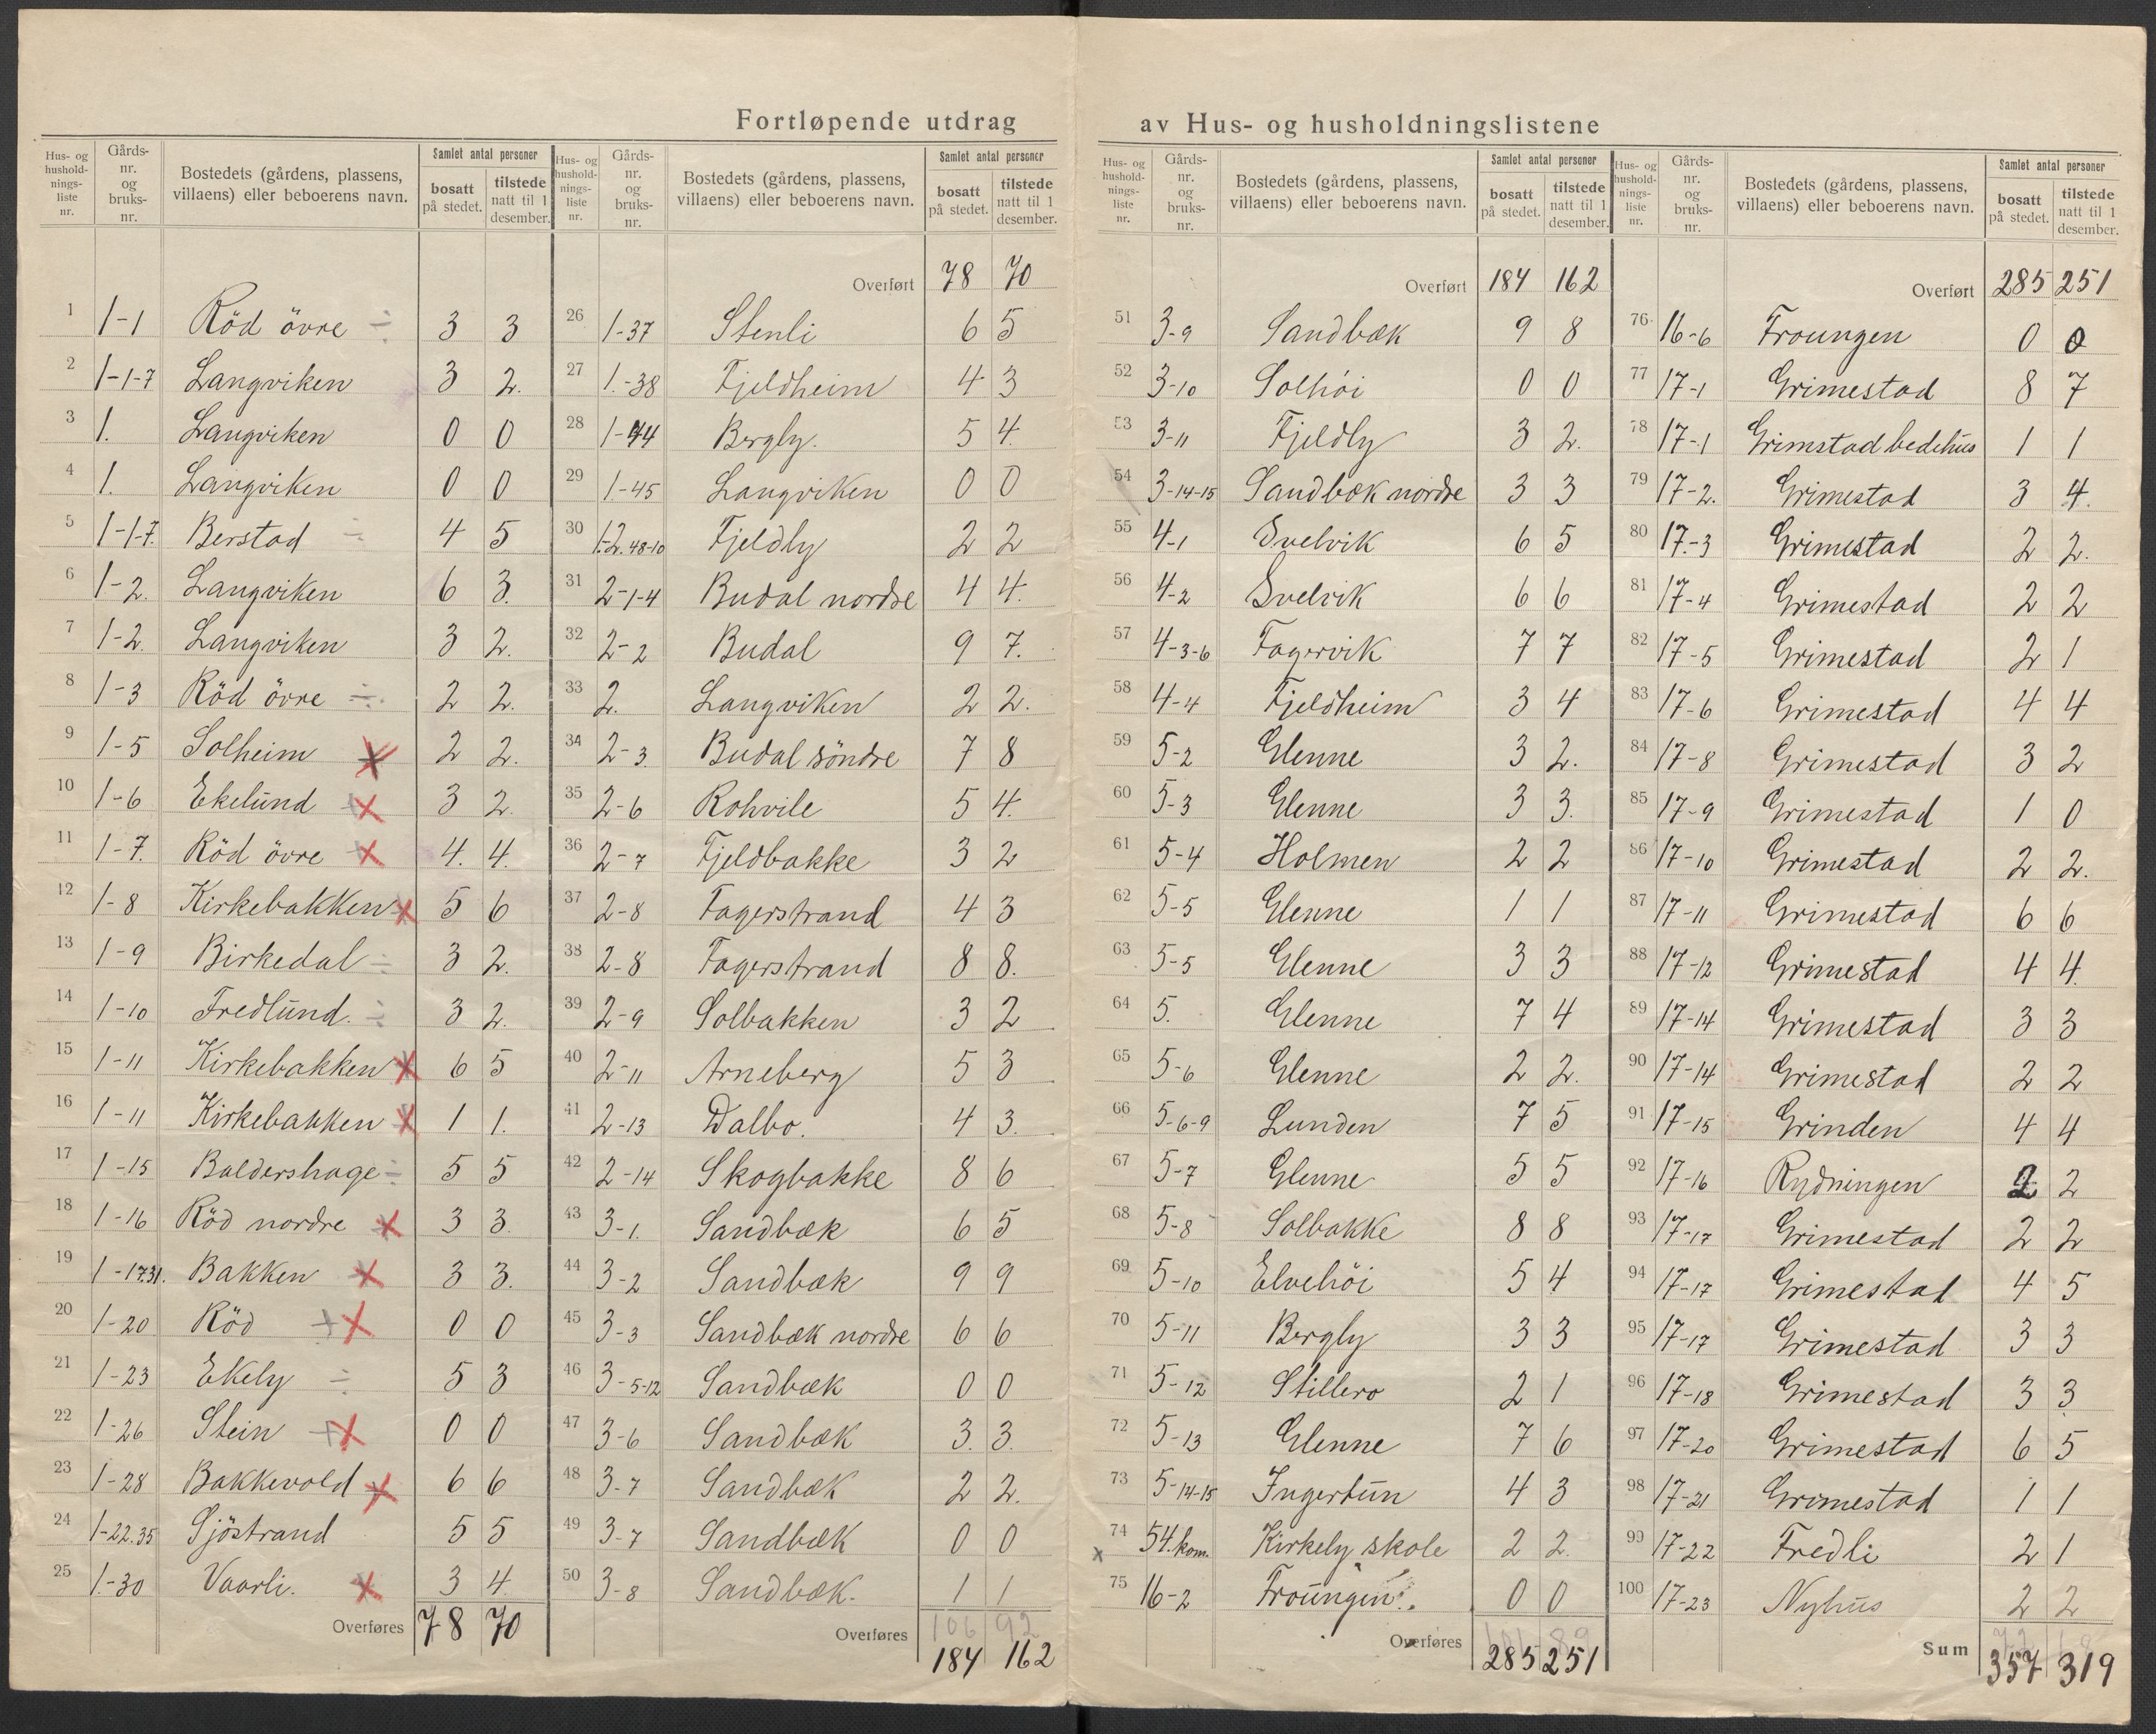 Fortløpende utdrag av Hus- og husholdningslistene
Hus- og husholdningsliste nr. | Gårds-nr. og bruks-nr. | Bostedets (gårdens, plassens, villaens) eller beboerens navn. | Samlet antal personer bosatt på stedet. | tilstede natt til 1 desember.
1 1-1 Röd övre ÷ 3 3
2 1-1-7 Langviken 3 2.
3 1. Langviken 0 0
4 1. Langviken 0 0
5 1-1-7. Berstad ÷ 4 5
6 1-2. Langviken 6 3.
7 1-2. Langviken 3 2.
8 1-3 Röd övre ÷ 2 2.
9 1-5 Solheim x 2 2.
10 1-6 Ekelund x 3 2.
11 1-7. Röd övre x 4. 4.
12 1-8 Kirkebakken x 5 6
13 1-9 Birkedal ÷ 3 2.
14 1-10 Fredlund. ÷ 3 2.
15 1-11 Kirkebakken x 6 5
16 1-11 Kirkebakken x 1 1.
17 1-15 Baldershage ÷ 5 5
18 1-16 Röd nordre x 3 3.
19 1-17.31. Bakken x 3 3.
20 1-20 Röd +x 0 0
21 1-23 Ekely ÷ 5 3
22 1-26 Stein +x 0 0
23 1-28 Bakkevold x 6 6
24 1-22.35 Sjöstrand 5 5
25 1.-30 Vaarli. x 3 4.
Overføres 78 70
Hus- og husholdningsliste nr. | Gårds-nr. og bruks-nr. | Bostedets (gårdens, plassens, villaens) eller beboerens navn. | Samlet antal personer bosatt på stedet. | tilstede natt til 1 desember.
Overført 78 70
26 1-37 Stenli 6 5
27 1.-38 Fjeldheim 4 3
28 1-44 Bergly. 5 4.
29 1-45 Langviken 0 0
30 1.-2.48-10 Fjeldly 2 2
31 2-1-4 Budal nordre 4 4.
32 2-2 Budal 9 7.
33 2. Langviken 2 2.
34 2-3. Budal söndre 7 8
35 2-6 Rohvile 5 4.
36 2-7 Fjeldbakke 3 2
37 2-8 Fagerstrand 4 3
38 2-8 Fagerstrand 8 8.
39 2-9 Solbakken 3 2
40 2-11 Arneberg 5 3
41 2-13 Dalbo. 4 3.
42 2-14 Skogbakke 8 6
43 3-1. Sandbæk 6 5
44 3-2 Sandbæk 9 9
45 3-3 Sandbæk nordre 6 6
46 3-5-12 Sandbæk 0 0
47 3-6 Sandbæk 3. 3.
48 3-7 Sandbæk 2 2.
49 3-7 Sandbæk 0 0
50 3-8 Sandbæk. 1 1
106 92
Overføres 184 162
Hus- og husholdningsliste nr. | Gårds-nr. og bruks-nr. | Bostedets (gårdens, plassens, villaens) eller beboerens navn. | Samlet antal personer bosatt på stedet. | tilstede natt til 1 desember.
Overført 184 162
51 3-9 Sandbæk 9 8
52 3-10 Solhöi 0 0
53 3-11 Fjeldly 3 2.
54 3-14-15 Sandbæk nordre 3 3
55 4-1 Svelvik 6 5
56 4-2 Svelvik 6 6
57 4-3-6 Fagervik 7 7
58 4-4 Fjeldheim 3 4
59 5-2 Glenne 3 2.
60 5-3 Glenne 3 3.
61 5-4 Holmen 2 2
62 5-5 Glenne 1 1
63 5-5 Glenne 3 3
64 5. Glenne 7 4
65 5-6 Glenne 2 2.
66 5-6-9 Lunden 7 5
67 5-7 Glenne 5 5
68 5-8 Solbakke 8 8
69 5-10 Elvehöi 5 4
70 5-11 Bergly 3 3
71 5-12 Stillero 2 1
72 5-13 Glenne 7 6
73 5-14-15 Ingertun 4 3
x 74 54.kom. Kirkely skole 2 2.
75 16-2 Froungen. 0 0
101 89
Overføres 285 251
Hus- og husholdningsliste nr. | Gårds-nr. og bruks-nr. | Bostedets (gårdens, plassens, villaens) eller beboerens navn. | Samlet antal personer bosatt på stedet. | tilstede natt til 1 desember.
Overført 285 251
76 16-6 Froungen 0 0
77 17-1 Grimestad 8 7
78 17-1 Grimstad bedehus 1 1
79 17-2. Grimestad 3 4.
80 17.-3 Grimestad 2 2.
81 17-4 Grimestad 2 2
82 17-5 Grimestad 2 1
83 17-6 Grimestad 4 4
84 17-8 Grimestad 3 2
85 17-9 Grimestad 1 0
86 17-10 Grimestad 2 2.
87 17-11 Grimestad 6 6
88 17-12 Grimestad 4 4.
89 17-14 Grimestad 3 3
90 17-14 Grimestad 2 2
91 17-15 Grinden 4 4
92 17-16 Rydningen 2 2
93 17-17 Grimestad 2 2
94 17-17 Grimestad 4 5
95 17-17 Grimestad 3 3
96 17-18 Grimestad 3 3
97 17-20 Grimestad 6 5
98 17-21 Grimestad 1 1
99 17-22 Fredli 2 1
100 17-23 Nyhus 2 2
72 68
Sum 357 319